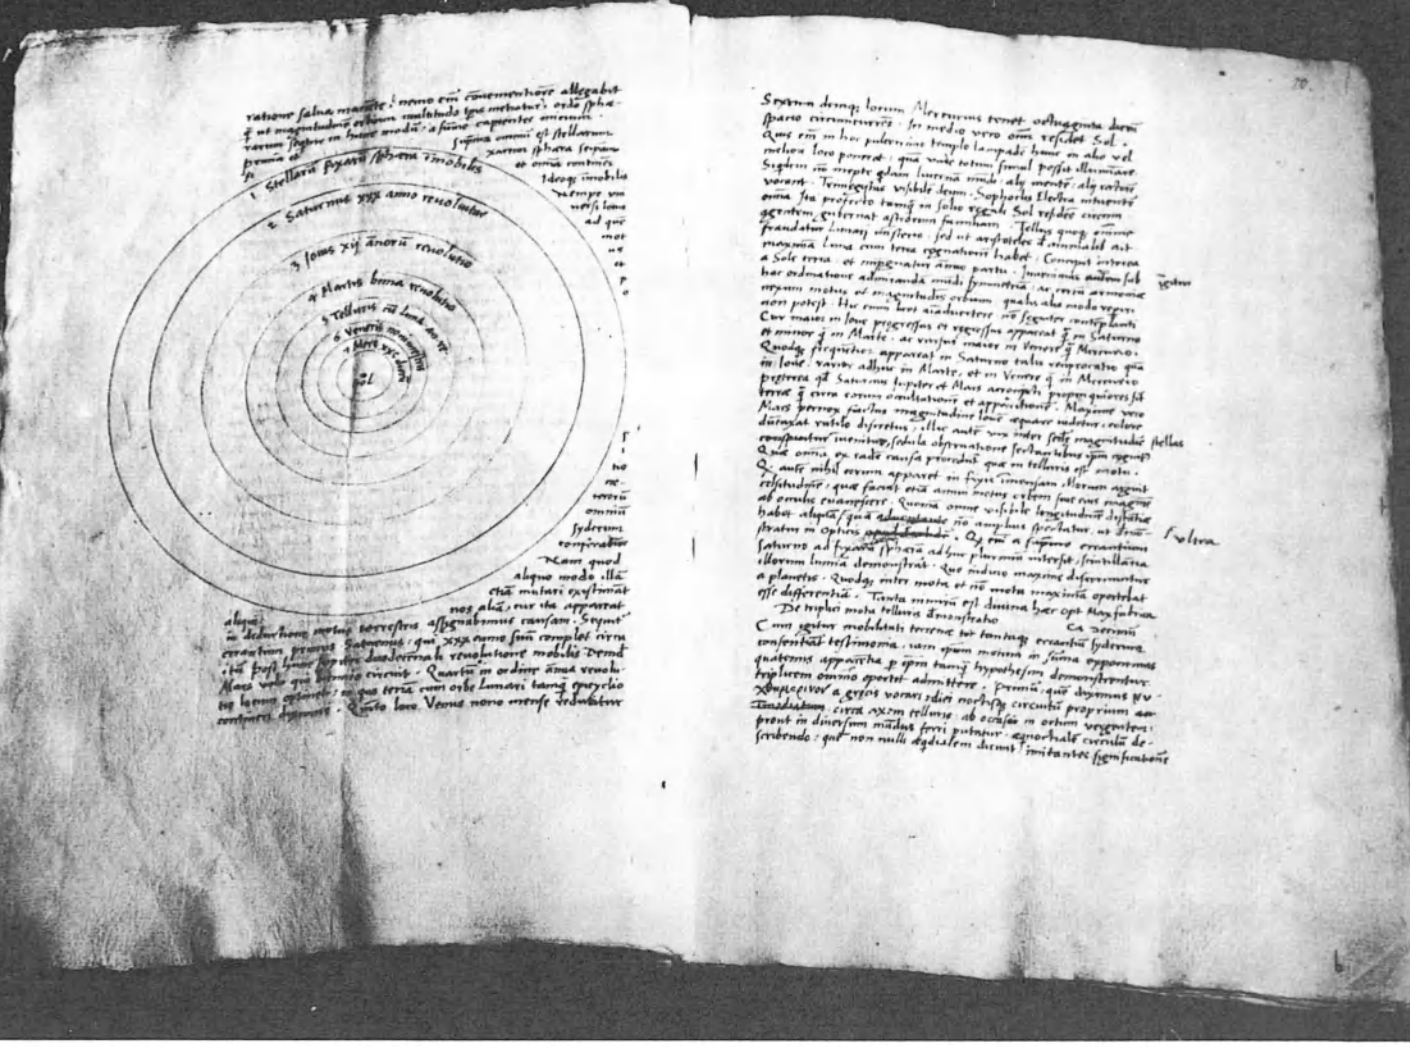 ratione salva manẽte, nemo em̃ cõvenientiorẽ allegabit
q̃ ut magnitudinẽ orbium multitudo tp̃is metiatur, ordo sphæ-
rarum sequitur in hunc modũ, a sũmo capientes initium.
prima et suprema omniũ est stellarum
fixarum sphæra seipsam
et omnia continẽs
Ideoq, im̃obilis
Nempe uni
versi locus
ad quẽ
mot
us
et
p
o
1 Stellarũ fixarũ sphæra im̃obilis
2 Saturnus xxx anno revolvitur
3 Iovis xij annorũ revolutio
4 Martis bima revolutio
5 Telluris cũ Luna an. re.
6 Veneris nonimestris
7 Merc xxc dierũ
Sol
tio
cæ-
terorũ
omniũ
syderum
conferatur
Nam quod
aliquo modo illã
etiã mutari existimãt
aliqui nos aliã, cur ita appareat
in deductione motus terrestris assignabimus causam. Sequitur
errantium primus Saturnus, qui XXX anno suũ complet circu
itũ. post hunc Jupiter duodecennali revolutione mobilis Deinde
Mars vel qui biennio circuit. Quartũ in ordine annua revolu-
tio locum optinet, in quo terrã cum orbe Lunari tamq̃ epicyclio
contineri diximus. Quinto loco Venus nono mense reducitur
20.
Sextum deniq, locum Mercurius tenet octuaginta dierũ
spacio circumcurrens. In medio vero om̃i residet Sol.
Quis em̃ in hoc pulcerrimo templo lampadẽ hanc in alio vel
meliori loco poneret, quã unde totum simul possit illuminare.
Siqdem nõ inepte qdam lucernã mũdi, alij mentẽ, alij rectorẽ
vocant. Trimegistus visibilẽ deum, Sophoclis Electra intuentẽ
omnia. Ita profecto tamq̃ in solio regali Sol residẽs circum
agentem gubernat astrorum familiam. Tellus quoq, minime
fraudatur lunari ministerio. sed ut aristoteles de animalibus ait
maximã Luna cum terra cognationẽ habet. Concipit interea
a Sole terra, et impregnatur ãnuo partu. Invenimus igitur sub
hac ordinatione admirandã mũdi symmetriã, ac certũ armoniæ
nexum motus et magnitudinis orbium, qualis alio modo reperiri
non potest. Hic enim licet aĩadvertere nõ segniter contẽplanti
Cur maior in Iove progressus et regressus appareat q̃ in Saturno
et minor q̃ in Marte, ac rursus maior in Venere q̃ Mercurio.
Quodq, frequẽtior appareat in Saturno talis reciprocatio quã
in Iove. rarior adhuc in Marte, et in Venere q̃ in Mercurio
præterea qd̃ Saturnus Jupiter et Mars acronycti propinquiores sint
terræ q̃ circa eorum occultationẽ et apparitionẽ. Maxime vero
Mars pernox factus magnitudine Iovẽ æquare videtur, colore
dũtaxat rutilo discretus, illic autẽ vix inter sedæ magnitudis stellas
invenitur, sedula observatione sectantibus
Quæ omnia ex eadẽ causa procedũt quæ in telluris est motu.
Qd̃ autẽ nihil eorum apparet in fixis im̃ensam illorum arguit
celsitudinẽ, quæ faciat etiã annui motus orbem sive eius imaginẽ
ab oculis evanescere. Quoniã omne visibile longitudinẽ distãtiæ
habet aliquã, ultra quã nõ amplius spectatur, ut demõ-
stratur in Opticis. Qd̃ em̃ a supremo errantium
Saturno ad fixarũ sphærã adhuc plurimũ intersit, scintillãtia
illorum lumina demonstrãt. Quo indicio maxime discernuntur
a planetis. Quodq, inter mota et nõ mota maximã oportebat
esse differentiã. Tanta nimirũ est divina hæc Opt Max fabrica
De triplici motu telluris demonstratio Ca Decimũ
Cum igitur mobilitati terrenæ tot tantaq, errantiũ syderum
consentiãt testimonia, iam ipsum motum in sũma exponemus
quatenus apparẽtia p ipsm tamq̃ hypothesim demonstrentur
triplicem omnino oportet admittere. Primũ, quẽ diximus νυ-
χθημερινον a græcis vocari, diei noctisq, circuitũ proprium
circa axem telluris, ab occasu in ortum vergentem,
prout in diversum mũdus ferri putatur. æquinoctialẽ circulũ de-
scribendo, quẽ non nulli æqdialem dicunt, imitantes significationẽ
b